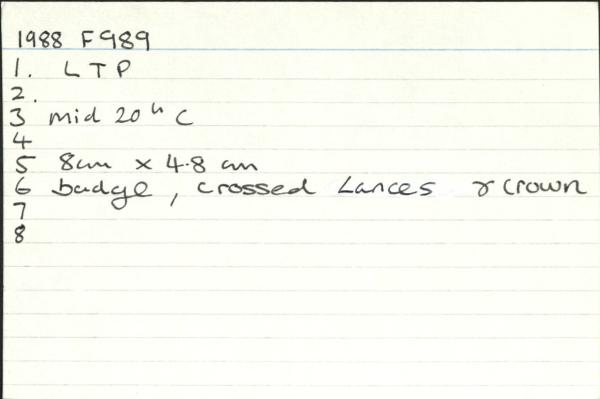 1988 F989
1. LTP
2.
3 mid 20th C
4
5 8cm x 4.8 cm
6 badge, crossed Lances & Crown
7
8